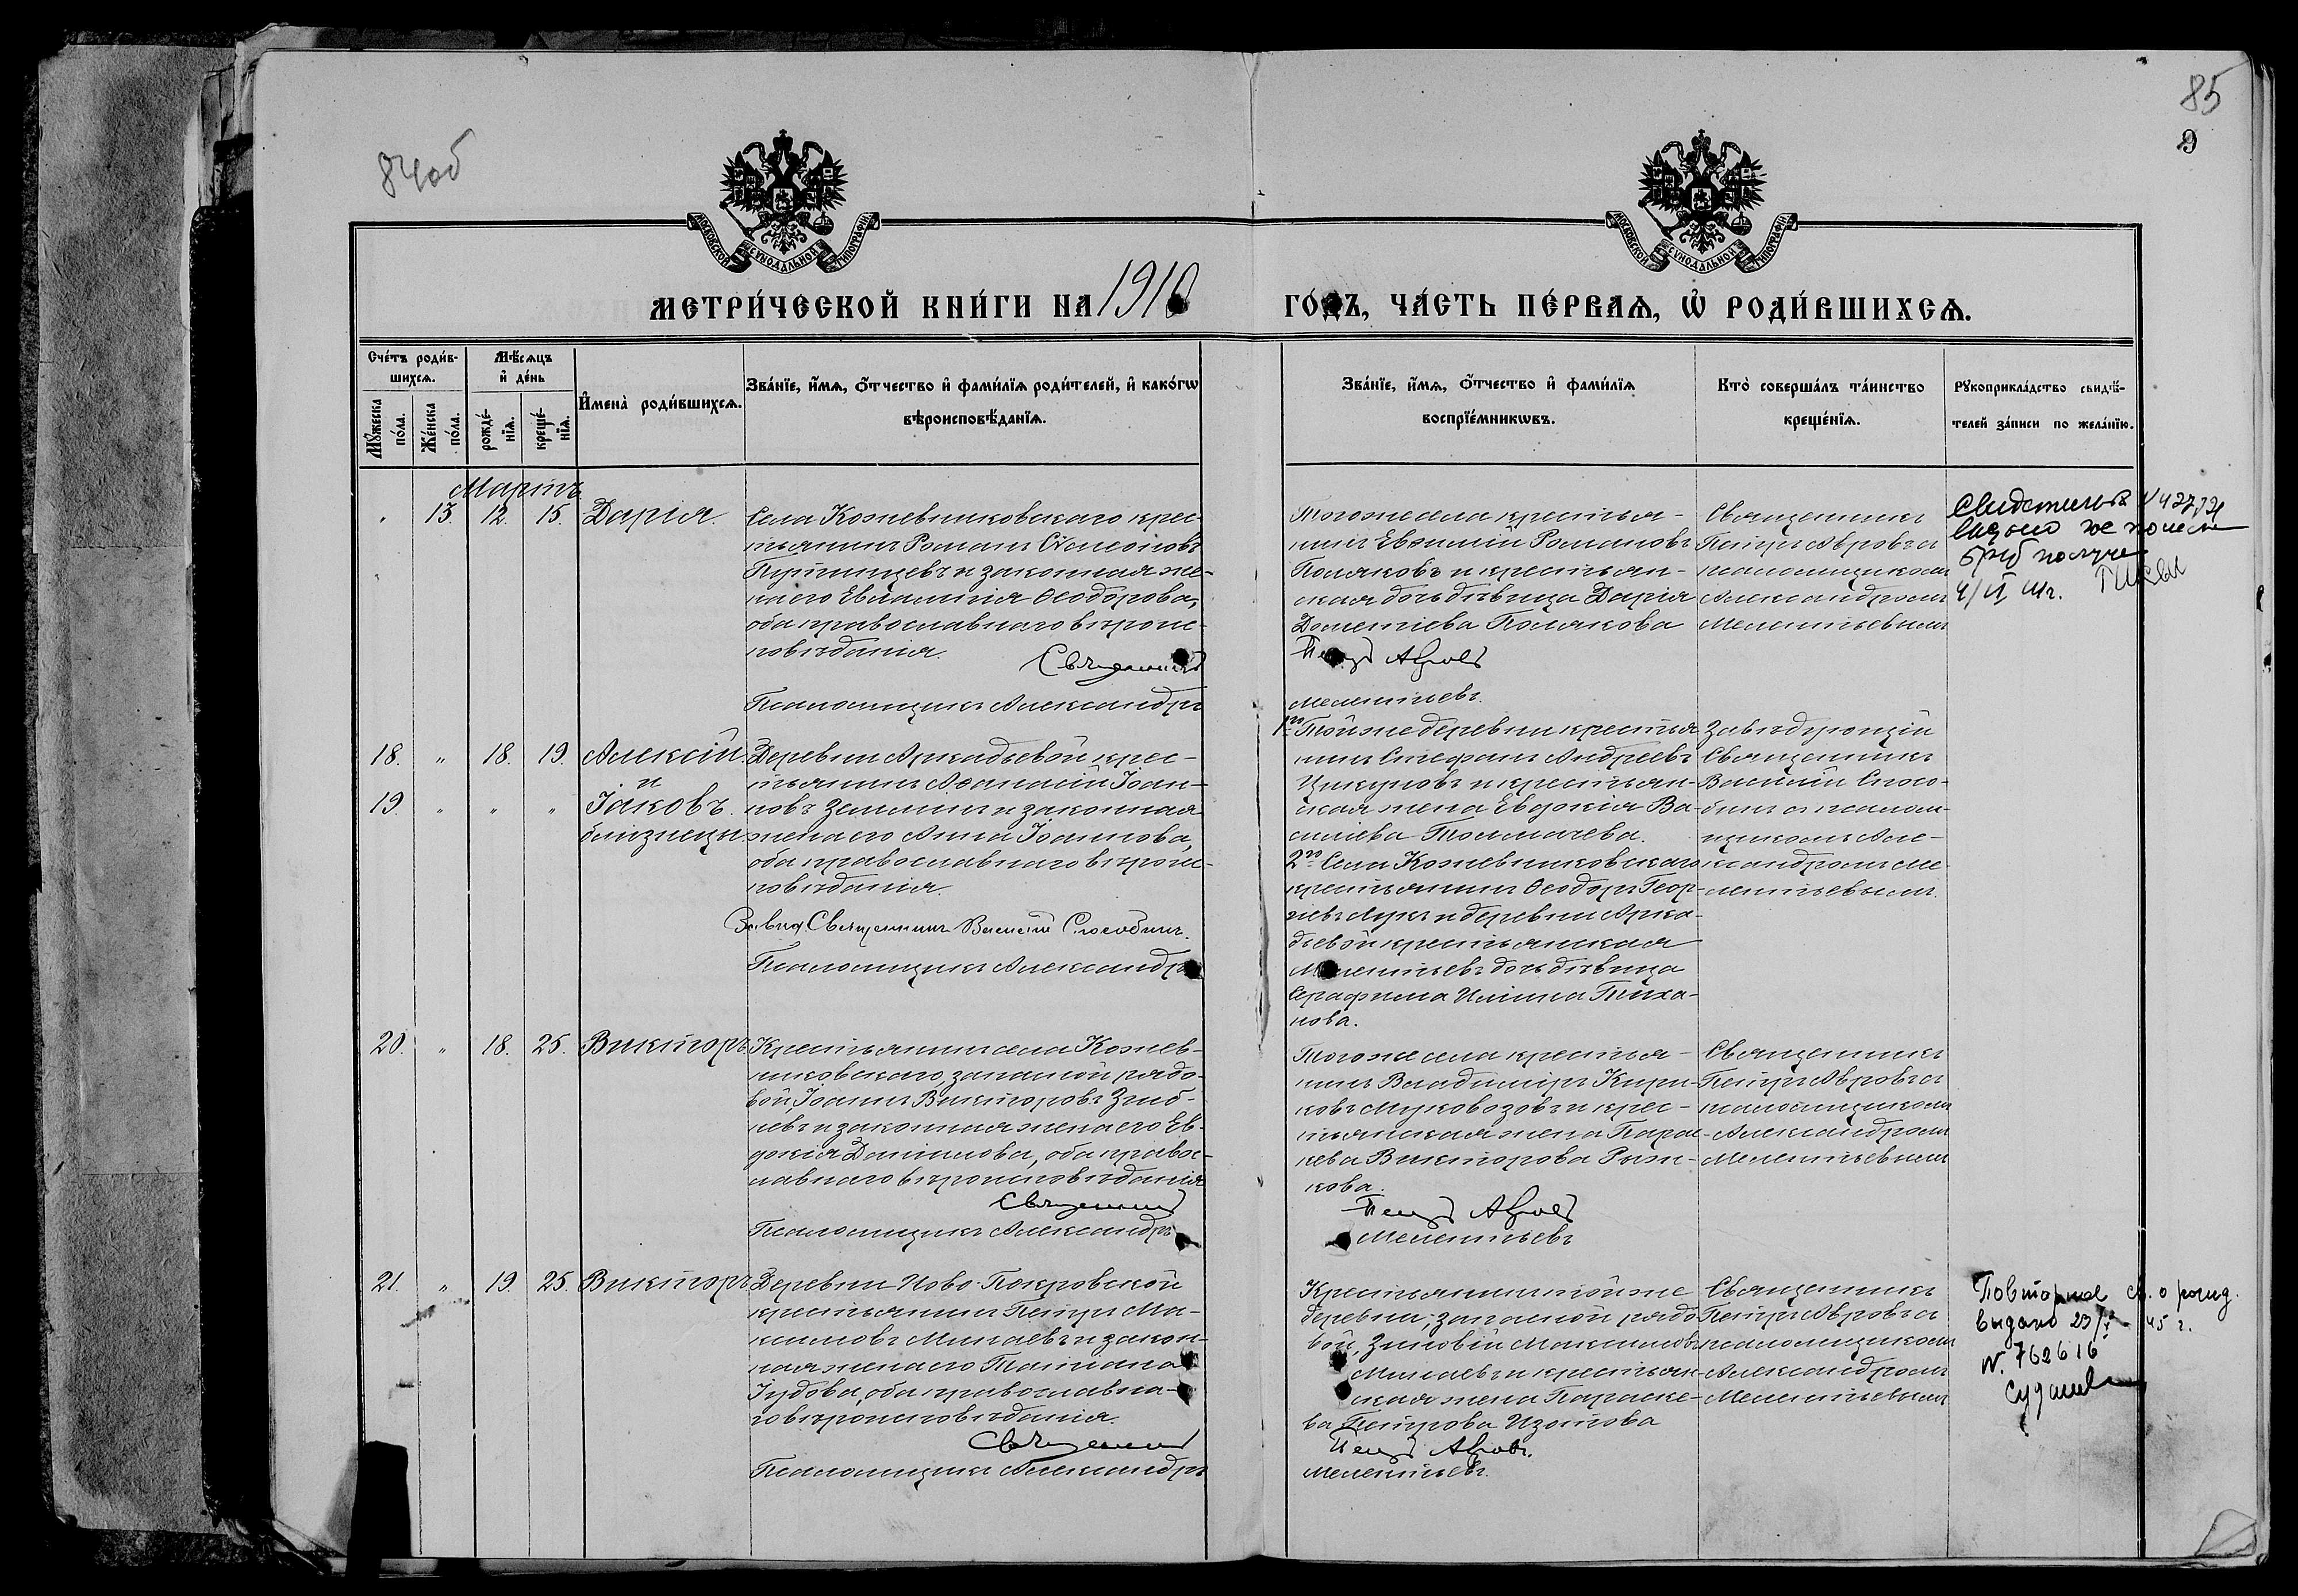 85
9
84об
МОСКОВСКОЙ СѴНОДАЛЬНОЙ ТИПОГРАФІИ
МОСКОВСКОЙ СѴНОДАЛЬНОЙ ТИПОГРАФІИ
МЕТРИ́ЧЕСКОЙ КНИ́ГИ НА 1910 ГО́ДЪ, ЧА́СТЬ ПЕ́РВАѦ, Ѡ РОДИ́ВШИХСѦ.
Сче́тъ роди́в-
шихсѧ.
Мꙋ́жеска по́ла.
Же́нска по́ла.
Мѣ́сѧцъ
и҆ де́нь
рожде́-
нїѧ.
креще́-
нїѧ.
И҆мена̀ роди́вшихсѧ.
Зва́нїе, и҆́мѧ, ѻ҆́тчество и҆ фами́лїѧ роди́телей, и҆ како́гѡ
вѣроисповѣ́данїѧ.
Зва́нїе, и҆́мѧ, ѻ҆́тчество и҆ фами́лїѧ
воспрїе́мникѡвъ.
Кто̀ соверша́лъ та́инство
креще́нїѧ.
Рꙋкоприкла́дство свидѣ́-
телей за́писи по жела́нїю.
Мартъ
13. 12. 15. Дарія.
Села Кожевниковскаго крес-
тьянинъ Романъ Симеоновъ
и законная же-
на его Евлампія Ѳеодорова,
оба православнаго вѣроис-
повѣданія.
Священникъ
Псаломщикъ Александръ
Того же села крестья-
нинъ Евѳимій Романовъ
Поляковъ и крестьян-
ская дочь дѣвица Дарія
Дометіева Полякова
Петръ Авровъ
Мелентьевъ.
Священникъ
Петръ Авровъ съ
псаломщикомъ
Александромъ
Мелентьевымъ
18. " 18. 19. Алексій
и
19. " " " Іаковъ.
близнецы
Деревни Аркадьевой крес-
тьянинъ Аѳанасій Іоан-
новъ Земинъ и законная
жена его Анна Іоаннова,
оба православнаго вѣроис-
повѣданія.
Завѣд. Священникъ Василій Способинъ.
Псаломщикъ Александръ
1го Той же деревни крестья-
нинъ Стефанъ Андреевъ
Цикуновъ и крестьян-
ская жена Евдокія Ва-
силіева Толмачева.
2го Села Кожевниковскаго
крестьянинъ Ѳеодоръ Геор-
гіевъ Лукъ и деревни Арка-
дьевой крестьянская
Мелентьевъ дочь дѣвица
Серафима Ильина Тиха-
нова.
Завѣдующій
Священникъ
Василій Спосо-
бинъ съ псалом-
щикомъ Але-
ксандромъ Ме-
лентьевымъ.
20. " 18. 25. Викторъ
Крестьянинъ села Кожев-
никовскаго, запасной рядо-
вой, Іоаннъ Викторовъ Зиб-
невъ и законная жена его Ев-
докія Даніилова, оба право-
славнаго вѣроисповѣданія
Священникъ
Псаломщикъ Александръ
Того же села крестья-
нинъ Владиміръ Кири-
ковъ Муковозовъ и крес-
тьянская жена Парас-
кева Викторова Рыж-
кова.
Петръ Авровъ
Мелентьевъ
Священникъ
Петръ Авровъ съ
псаломщикомъ
Александромъ
Мелентьевымъ
21. " 19. 25. Викторъ
Деревни Ново-Покровской
крестьянинъ Петръ Ма-
ксимовъ Минаевъ и закон-
ная жена его Татіана
Іудова, оба православна-
го вѣроисповѣданія.
Священникъ
Псаломщикъ Александръ
Крестьянинъ той же
деревни, запасной рядо-
вой, Зиновій Максимовъ
Минаевъ и крестьян-
ская жена Параске-
ва Петрова Изотова
Петръ Авровъ.
Мелентьевъ.
Священникъ
Петръ Авровъ съ
псаломщикомъ
Александромъ
Мелентьевымъ
Повторное св. о рожд.
выдано 23/ 45 г.
N. 762616